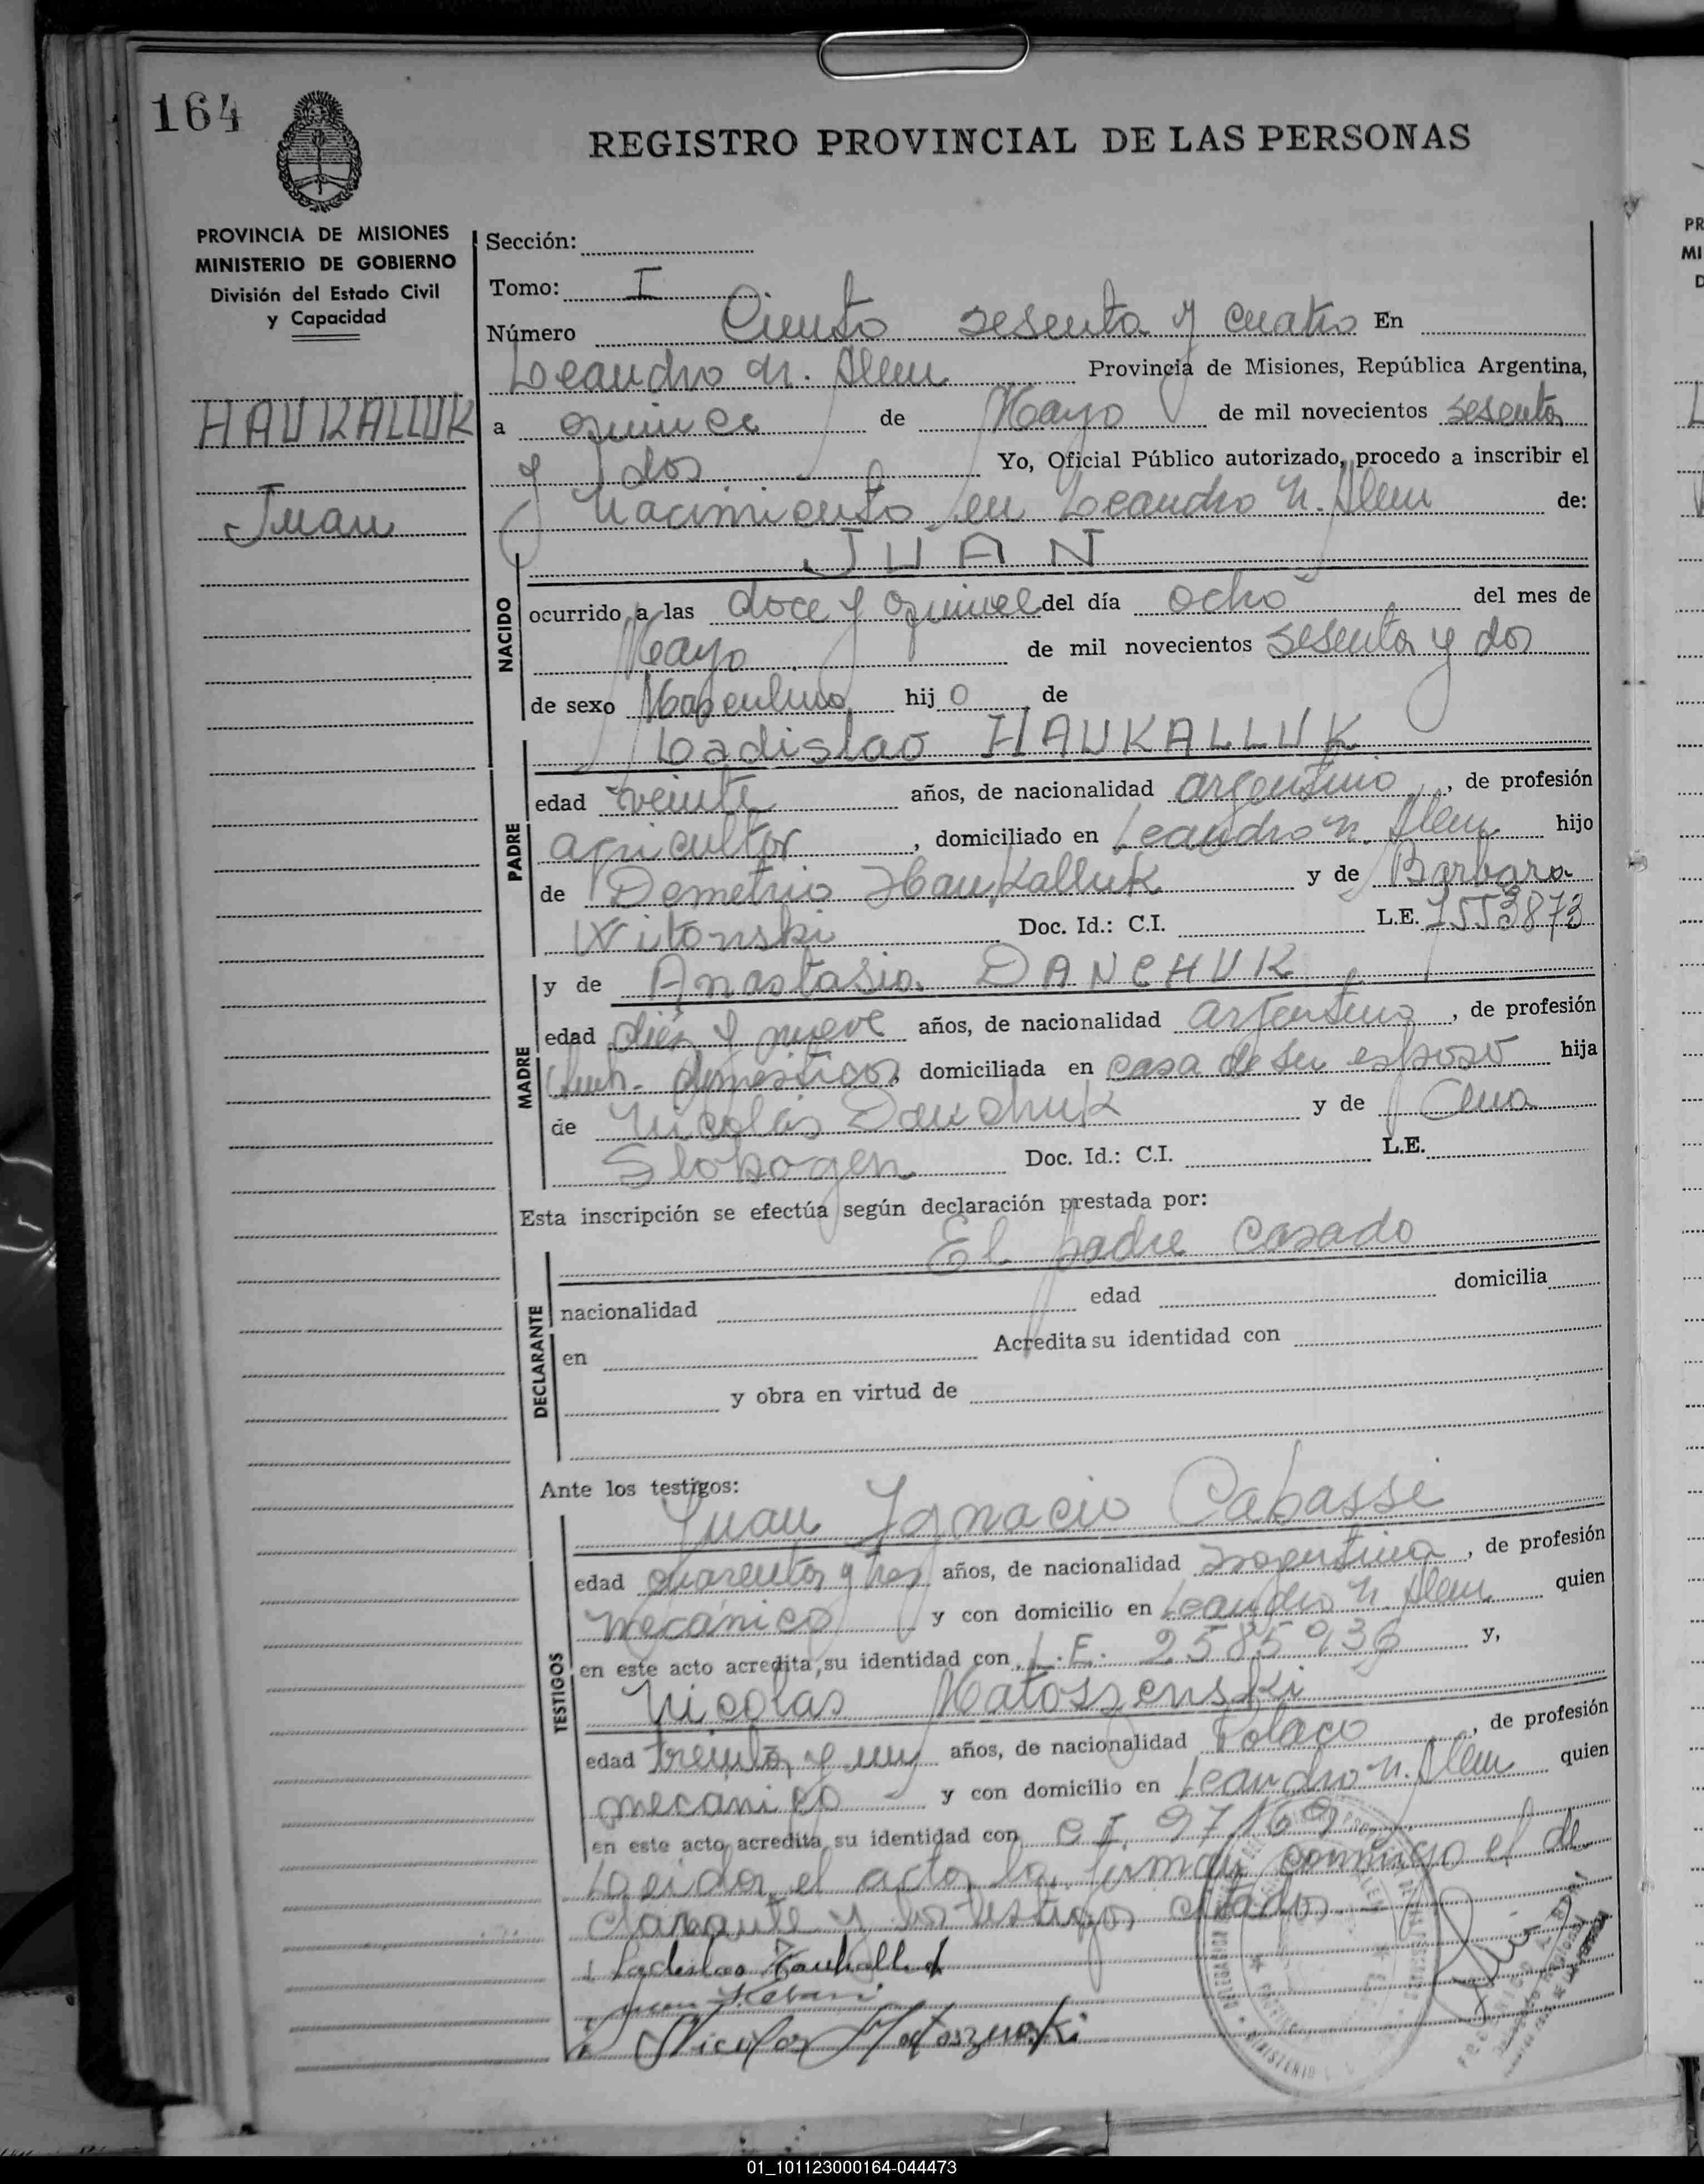 164
REGISTRO PROVINCIAL DE LAS PERSONAS
PROVINCIA DE MISIONES
MINISTERIO DE GOBIERNO
División del Estado Civil
y Capacidad
HAUKALLUK
Juan
Sección:
Tomo: I
Número Ciento sesenta y cuatro En
Leandro N. Alem Provincia de Misiones, República Argentina,
a quince de Mayo de mil novecientos sesenta
y dos Yo, Oficial Público autorizado, procedo a inscribir el
Nacimiento en Leandro N. Alem de:
JUAN
NACIDO
ocurrido a las doce y quince del día ocho del mes de
Mayo de mil novecientos sesenta y dos
de sexo Masculino hijo de
Ladislao HAUKALLUK
PADRE
edad veinte años, de nacionalidad argentino, de profesión
agricultor, domiciliado en Leandro N. Alem hijo
de Demetrio Haukalluk y de Barbara
Witonski Doc. Id.: C.I. L.E. 7553873
y de Anastasia DANCHUK
MADRE
edad diez y nueve años, de nacionalidad argentina, de profesión
domesticos, domiciliada en casa de su esposo hija
de Nicolás Danchuk y de Ana
Slobogen Doc. Id.: C.I. L.E.
Esta inscripción se efectúa según declaración prestada por:
El padre casado
DECLARANTE
nacionalidad edad domicilia
en Acredita su identidad con
y obra en virtud de
Ante los testigos:
Juan Ignacio Cabassi
TESTIGOS
edad cuarenta y tres años, de nacionalidad argentina, de profesión
mecánico y con domicilio en Leandro N. Alem quien
en este acto acredita su identidad con L.E. 2585936 y,
Nicolas Matoszenski
edad treinta y un años, de nacionalidad Polaco, de profesión
mecánico y con domicilio en Leandro N. Alem quien
en este acto acredita su identidad con C I. 97169
Leida el acta, la firman conmigo el de
clarante y los testigos citados
Ladislao Haukalluk
Juan
Nicolas Matoszenski
01_101123000164-044473